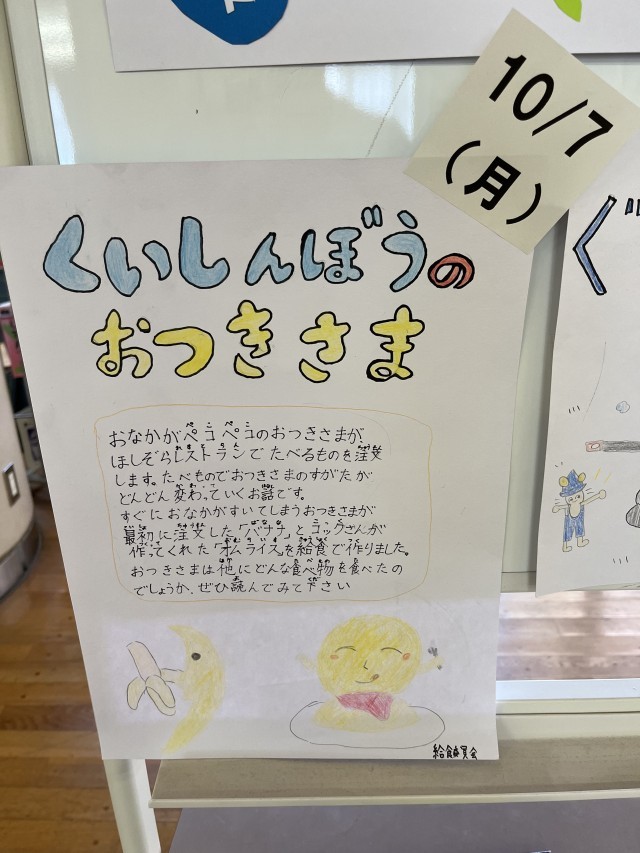 10/7
(月)
くいしんぼうの
おつきさま
おなかがペコペコのおつきさまが
ほしぞらレストランでたべるものを注文
します。たべものでおつきさまのすがたが
どんどん変わっていくお話です。
すぐにおなかがすいてしまうおつきさまが
最初に注文した「バナナ」とコックさんが
作ってくれた「オムライス」を給食で作りました。
おつきさまは他にどんな食べ物を食べたの
でしょうか、ぜひ読んでみて下さい
給食委員会
ぐ